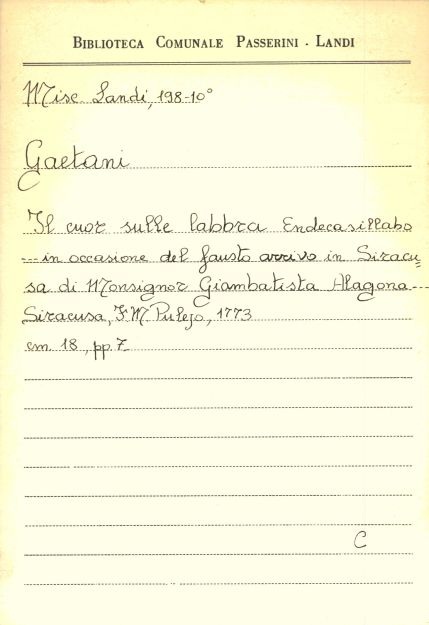 BIBLIOTECA COMUNALE PASSERINI - LANDI
Misc. Landi, 198-10°
Gaetani
Il cuor sulle labbra Endecasillabo
--- in occasione del fausto arrivo in Siracu=
sa di Monsignor Giambatista Alagona ---
Siracusa, F M Pulejo, 1773
cm. 18, pp. 7
C